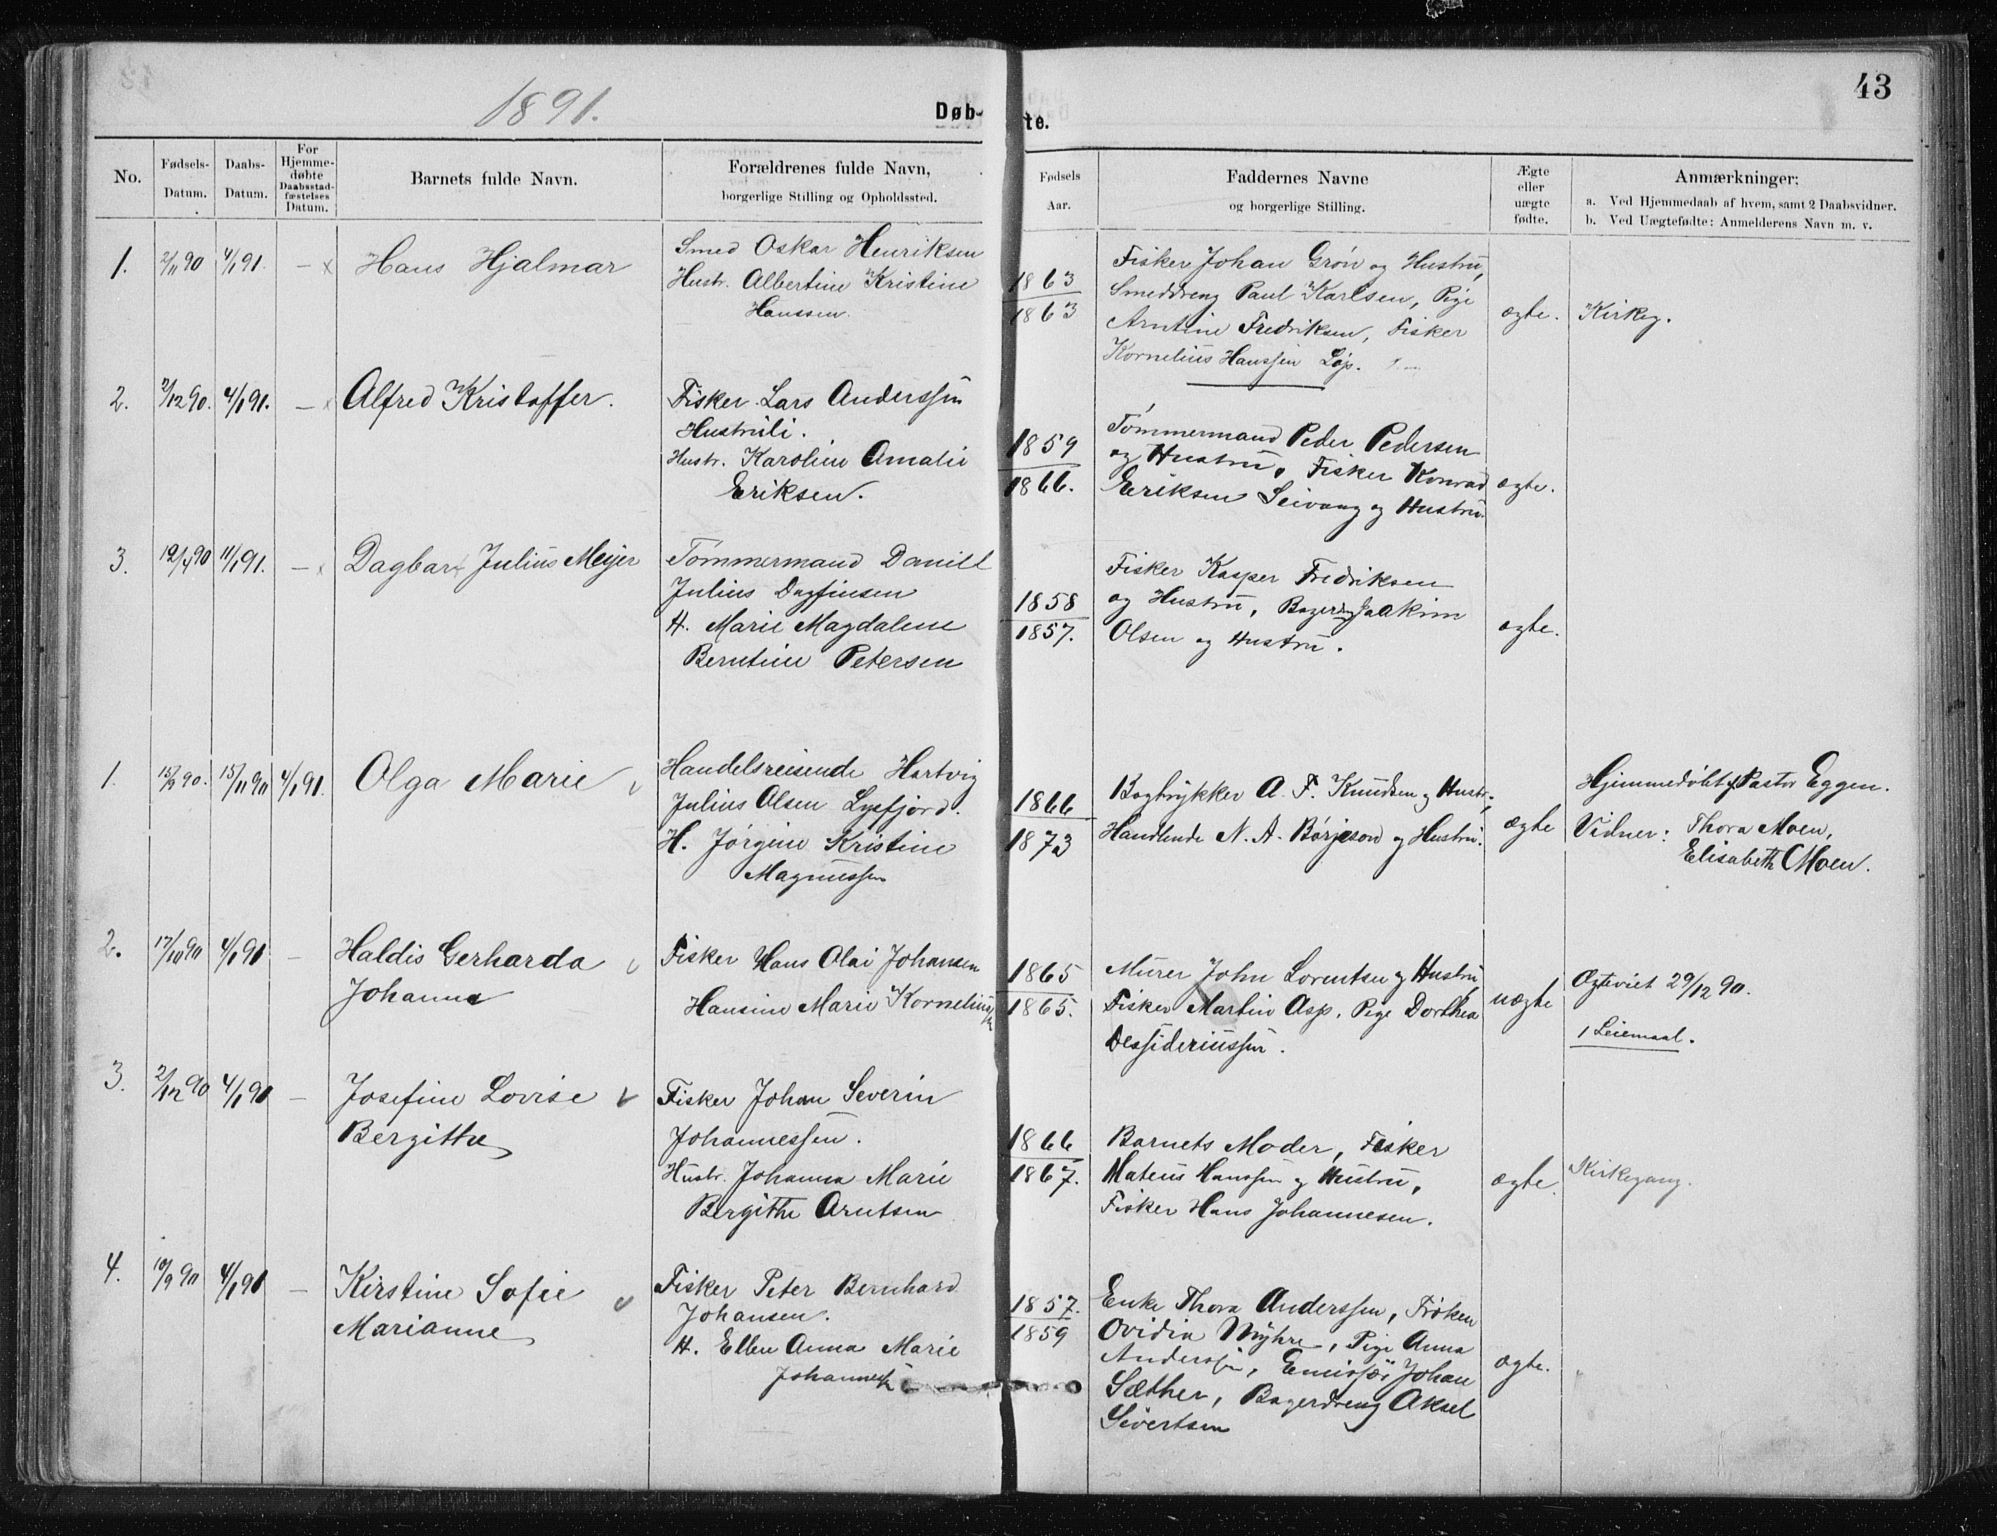 43
1891.
Døb-
te.
No.
Fødsels-
Datum.
Daabs-
Datum.
For
Hjemme-
døbte
Daabsstad-
fæstelses
Datum.
Barnets fulde Navn.
Forældrenes fulde Navn,
borgerlige Stilling og Opholdssted.
Fødsels
Aar.
Faddernes Navne
og borgerlige Stilling.
Ægte
eller
uægte
fødte.
Anmærkninger:
a. Ved Hjemmedaab af hvem, samt 2 Daabsvidner.
b. Ved Uægtefødte: Anmelderens Navn m. v.
1. 2/11 90 4/1 91. — x Hans Hjalmar
Smed Oskar Henriksen
Hustr. Albertine Kristine
Hanssen.
1863
1863
Fisker Johan Grøn og Hustru,
Smeddreng Paul Karlsen, Pige
Arntine Fredriksen, Fisker
Kornelius Hanssen Løp.
ægte.
Kirkeg.
2. 2/12 90. 4/1 91. — x Alfred Kristoffer.
Fisker Lars Anderssen
Hustruli.
Hustr. Karoline Amalie
Eriksen.
1859
1866.
Tømmermand Peder Pedersen
og Hustru, Fisker Konrad
Eriksen Seivaag og Hustru.
ægte.
3. 90 11/1 91. — x Dagbar Julius Meyer
Tømmermand Daniel
Julius Dagfinsen
H. Marie Magdalene
Berntine Petersen
1858
1857.
Fisker Kasper Fredriksen
og Hustru, Joakim
Olsen og Hustru.
ægte.
1. 15/9 90. 15/11 90 4/1 91. Olga Marie v
Handelsreisende Hartvig
Julius Olsen Lysfjord.
H. Jørgine Kristine
Magnussen
1866
1873
Bogtrykker A. F. Knudsen og Hustr.,
Handlende N. A. Børjeson og Hustru.
ægte
Hjemmedøbt af Pastor Eggen.
Vidner: Thora Moen,
Elisabeth Moen.
2. 17/10 90 4/1 91 — Haldis Gerharda v
Johanna
Fisker Hans Olai Johansen
Hansine Marie Korneliussen
1865
1865.
Murer John Lorentsen og Hustru
Fisker Martin Asp, Pige Dorthea
Dessideriussen.
uægte
Ægteviet 29/12 90.
1 Leiemaal.
3. 2/12 90 4/1 91 — Josefine Lovise v
Bergitte
Fisker Johan Severin
Johannessen.
Hustr. Johanna Marie
Bergitte Arntsen
1866
1867.
Barnets Moder, Fisker
Mateus Hanssen og Hustru,
Fisker Hans Johannesen.
ægte.
Kirkegang.
4. 10/9 90 4/1 91 — Kirstine Sofie v
Marianne
Fisker Peter Bernhard
Johansen.
H. Ellen Anna Marie
1857.
1859
Enke Thora Anderssen, Frøken
Ovidia Myhre, Pige Anna
Anderssen, Emissær Johan
Sæther, Bagerdreng Aksel
Sivertsen
ægte.